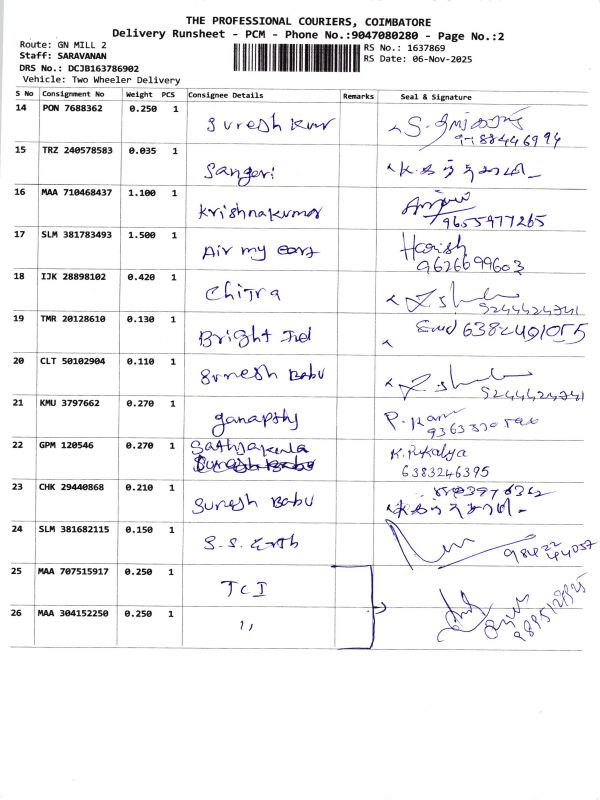 THE PROFESSIONAL COURIERS, COIMBATORE
Delivery Runsheet - PCM - Phone No.:9047080280 - Page No.:2
Route: GN MILL 2
RS No.: 1637869
Staff: SARAVANAN
RS Date: 06-Nov-2025
DRS No.: DCJB163786902
Vehicle: Two Wheeler Delivery
S No Consignment No Weight PCS Consignee Details Remarks Seal & Signature
14 PON 7688362 0.250 1 Suresh Kumr
15 TRZ 240578583 0.035 1
16 MAA 710468437 1.100 1 Krishnakumar
9655977265
17 SLM 381783493 1.500 1 Air my Harish
9626699603
18 IJK 28898102 0.420 1 Chitra
9244424741
19 TMR 20128610 0.130 1 Bright Ind
20 CLT 50102904 0.110 1 Suresh Babu
9244424741
21 KMU 3797662 0.270 1 ganapthy P.
22 GPM 120546 0.270 1
6383246395
23 CHK 29440868 0.210 1 Suresh Babu
24 SLM 381682115 0.150 1 S.S.
25 MAA 707515917 0.250 1 TCI
26 MAA 304152250 0.250 1 ,,